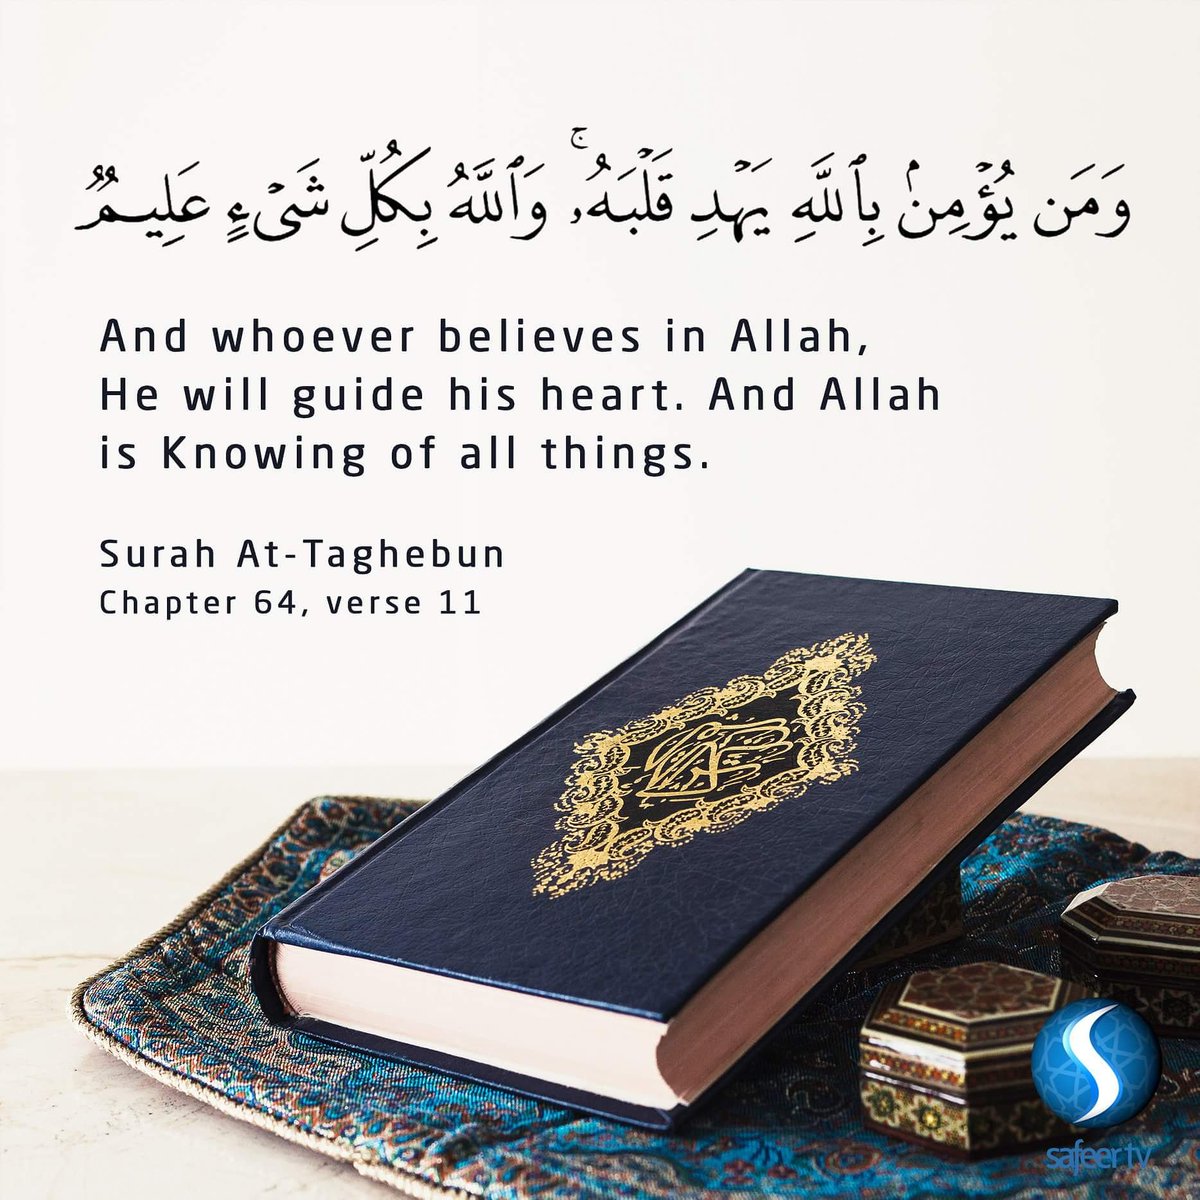 وَمَن يُؤْمِنۢ بِٱللَّهِ يَهْدِ قَلْبَهُۥۚ وَٱللَّهُ بِكُلِّ شَىْءٍ عَلِيمٌۭ
And whoever believes in Allah,
He will guide his heart. And Allah
is Knowing of all things.
Surah At-Taghebun
Chapter 64, verse 11
safeer tv